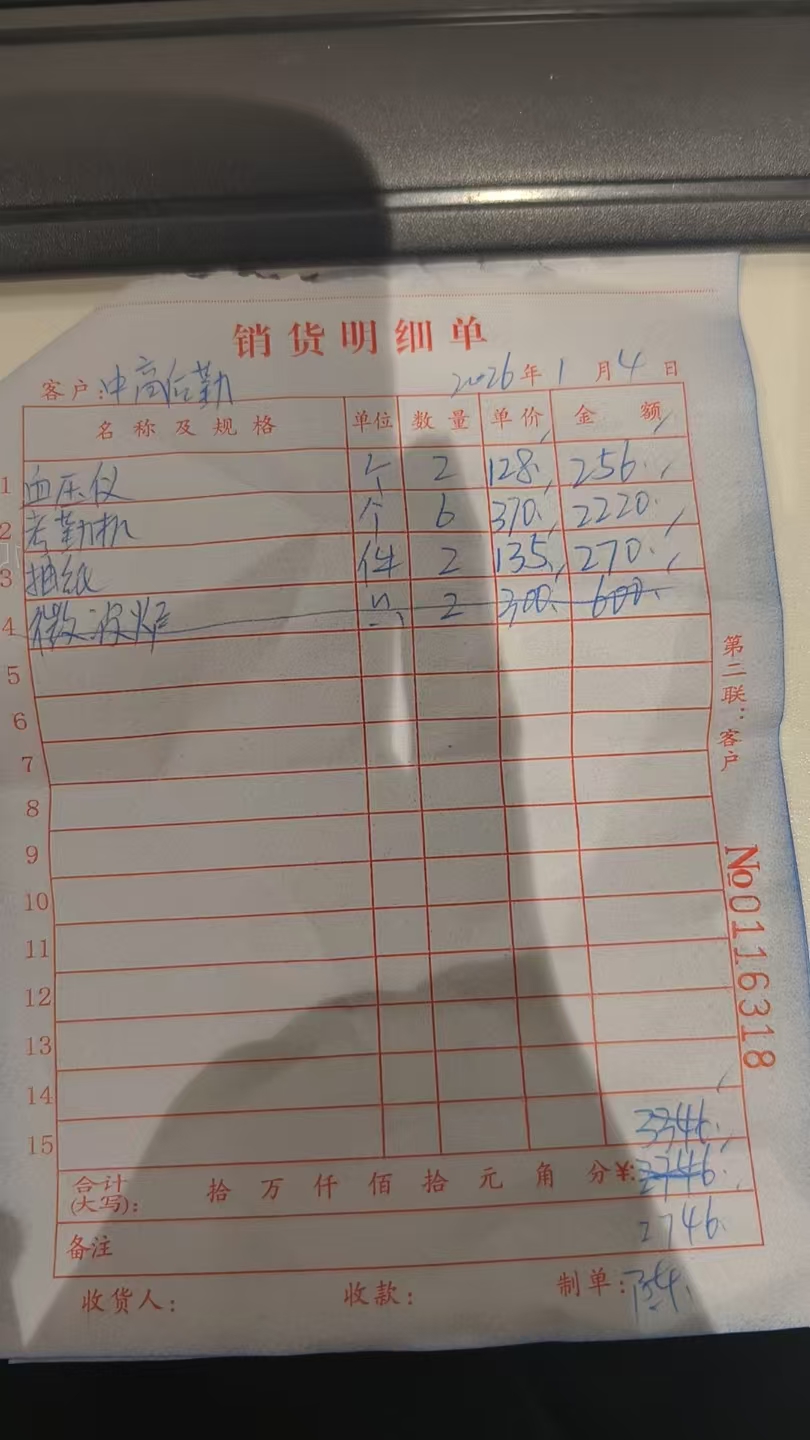 销货明细单
客户:中高后勤 2026年1月4日
名称及规格 单位 数量 单价 金额
1 血压仪 个 2 128. 256.
2 考勤机 个 6 370. 2220.
3 抽纸 件 2 135. 270.
4 微波炉 2 300. 600.
5
6
7
8
9
10
11
12
13
14
15 3346.
合计(大写): 拾万仟佰拾元角分¥:2746.
备注 2746.
收货人: 收款: 制单:
第二联:客户
No0116318